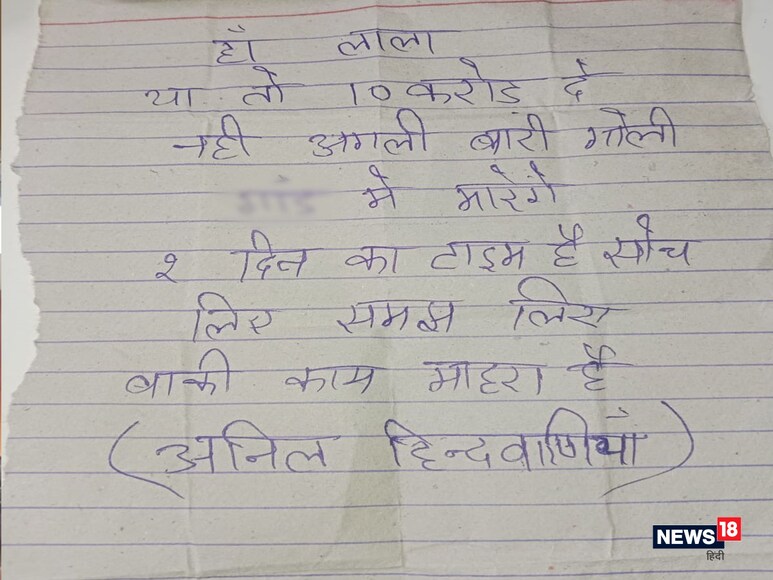 हाँ लाला
या तो 10 करोड़ दे
नही अगली बारी गोली
मे मारेगे
2 दिन का टाइम है सोच
लिए समझ लिए
बाकी काम माहरा है
(अनिल हिन्दवाणियाँ)
NEWS 18
हिंदी